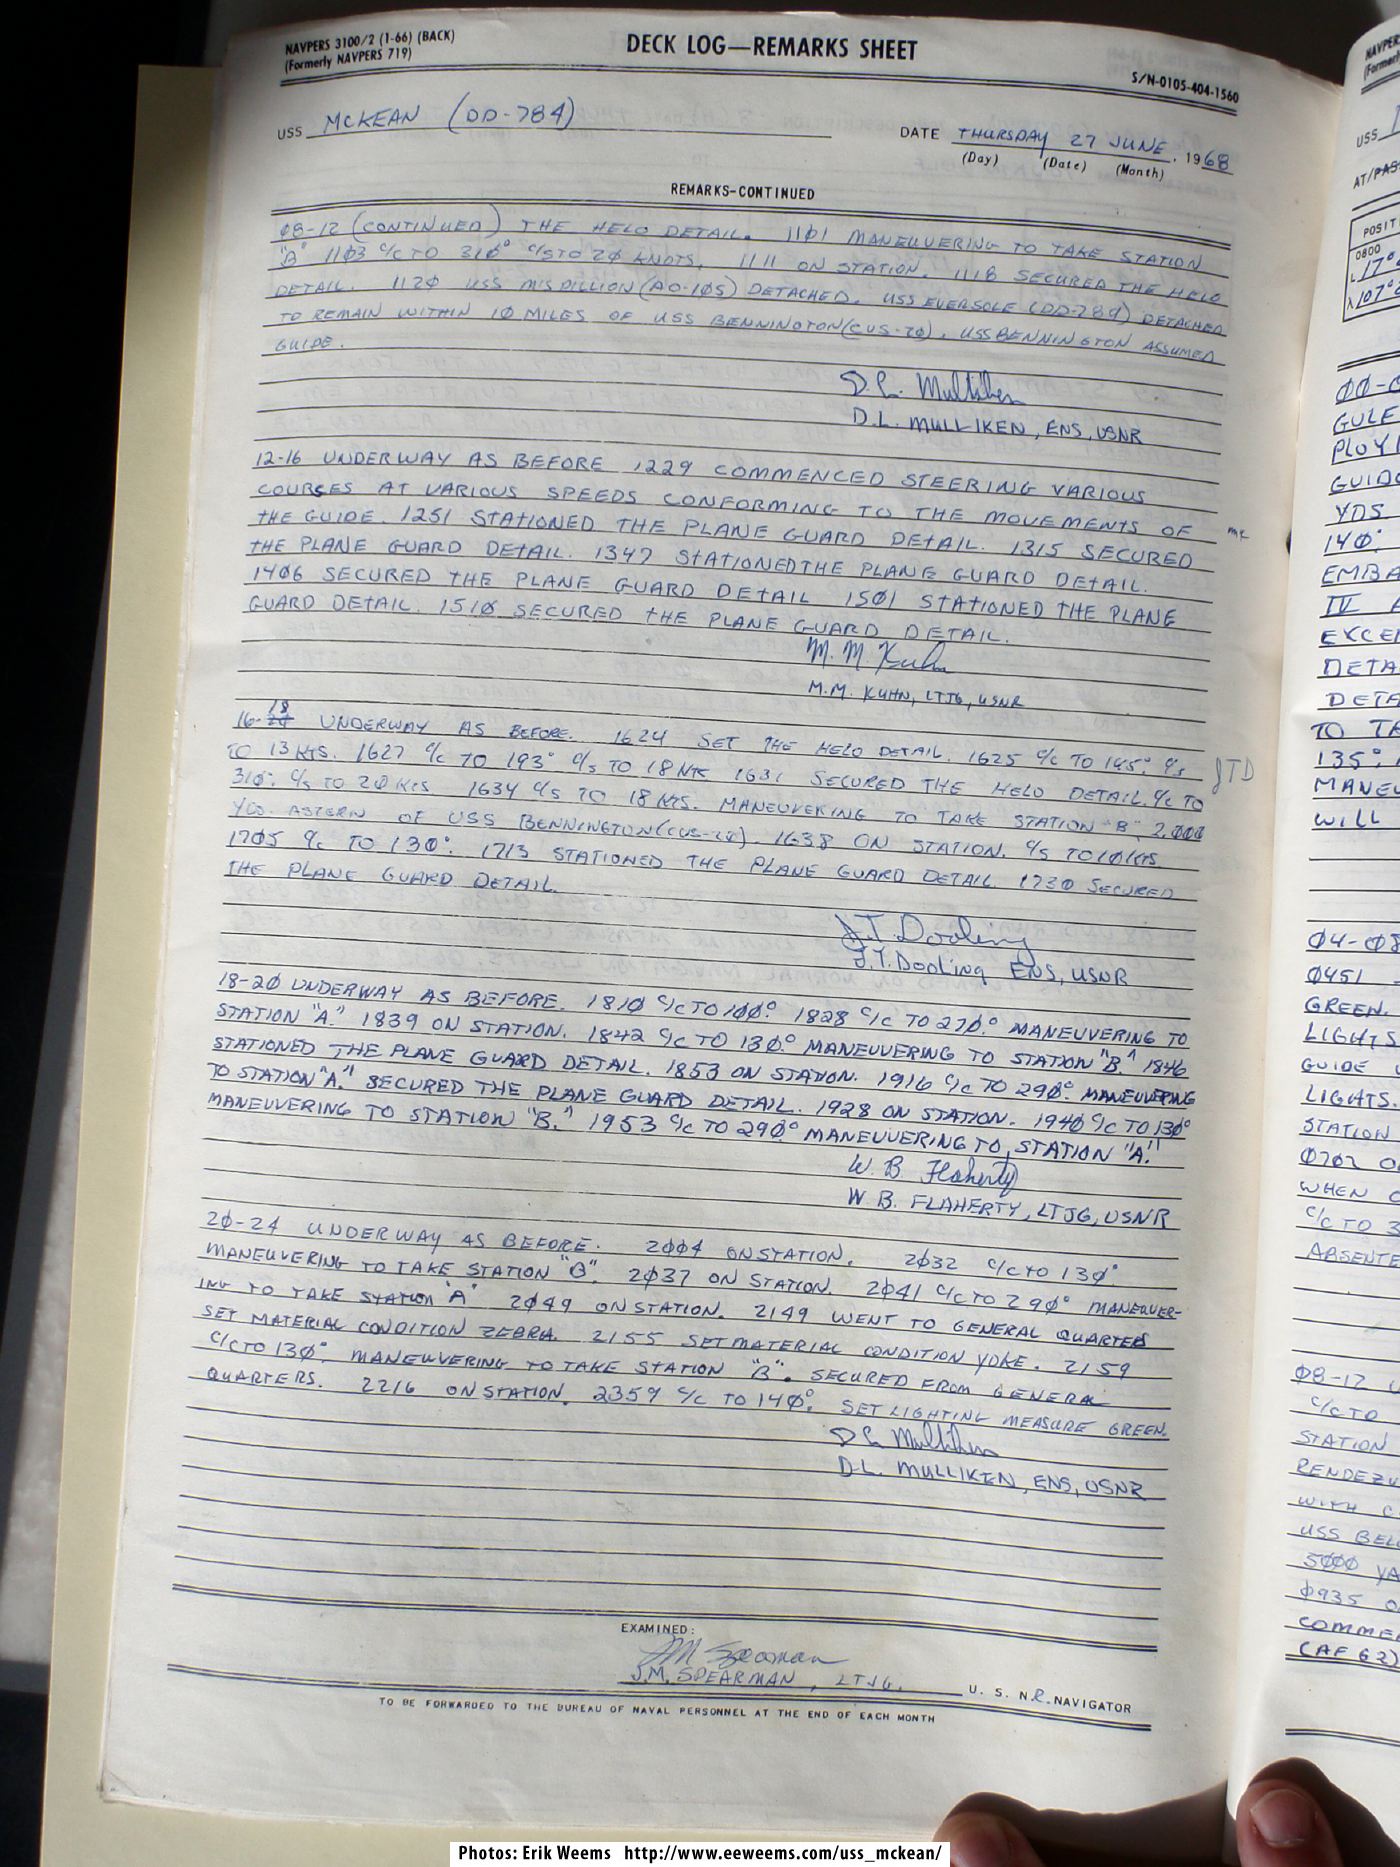 NAVPERS 3100/2 (1-66) (BACK)
(Formerly NAVPERS 719)
DECK LOG—REMARKS SHEET
S/N-0105-404-1560
USS MCKEAN (DD-784)
DATE THURSDAY 27 JUNE, 1968
(Day) (Date) (Month)
REMARKS-CONTINUED
Ø8-12 (CONTINUED) THE HELO DETAIL. 11Ø1 MANEUVERING TO TAKE STATION
"B" 11Ø3 C/C TO 31Ø° C/S TO 2Ø KNOTS. 1111 ON STATION. 1118 SECURED THE HELO
DETAIL. 112Ø USS MISPILLION (AO-1Ø5) DETACHED. USS EVERSOLE (DD-789) DETACHED
TO REMAIN WITHIN 1Ø MILES OF USS BENNINGTON (CVS-2Ø). USS BENNINGTON ASSUMED
GUIDE.
D.L. Mulliken
D.L. MULLIKEN, ENS, USNR
12-16 UNDERWAY AS BEFORE 1229 COMMENCED STEERING VARIOUS
COURSES AT VARIOUS SPEEDS CONFORMING TO THE MOVEMENTS OF
THE GUIDE. 1251 STATIONED THE PLANE GUARD DETAIL. 1315 SECURED
THE PLANE GUARD DETAIL. 1347 STATIONED THE PLANE GUARD DETAIL.
14Ø6 SECURED THE PLANE GUARD DETAIL 15Ø1 STATIONED THE PLANE
GUARD DETAIL. 151Ø SECURED THE PLANE GUARD DETAIL.
M. M Kuhn
M.M. KUHN, LTJG, USNR
16-18 UNDERWAY AS BEFORE. 1624 SET THE HELO DETAIL. 1625 C/C TO 165° C/S
TO 13 KTS. 1627 C/C TO 193° C/S TO 18 KTS 1631 SECURED THE HELO DETAIL. C/C TO
31Ø° C/S TO 2Ø KTS. 1634 C/S TO 18 KTS. MANEUVERING TO TAKE STATION "B", 2,ØØØ
YDS. ASTERN OF USS BENNINGTON (CVS-2Ø). 1638 ON STATION. C/S TO 1Ø KTS
17Ø5 C/C TO 13Ø°. 1713 STATIONED THE PLANE GUARD DETAIL. 173Ø SECURED
THE PLANE GUARD DETAIL.
JTD
J.T. Dooling
J.T. Dooling ENS, USNR
18-2Ø UNDERWAY AS BEFORE. 181Ø C/C TO 1ØØ°. 1828 C/C TO 27Ø.° MANEUVERING TO
STATION "A." 1839 ON STATION. 1842 C/C TO 13Ø.° MANEUVERING TO STATION "B." 1846
STATIONED THE PLANE GUARD DETAIL. 1853 ON STATION. 1916 C/C TO 29Ø.° MANEUVERING
TO STATION "A." SECURED THE PLANE GUARD DETAIL. 1928 ON STATION. 194Ø C/C TO 13Ø°
MANEUVERING TO STATION "B." 1953 C/C TO 29Ø.° MANEUVERING TO STATION "A."
W. B. Flaherty
W. B. FLAHERTY, LTJG, USNR
2Ø-24 UNDERWAY AS BEFORE. 2ØØ4 ON STATION. 2Ø32 C/C TO 13Ø°
MANEUVERING TO TAKE STATION "B". 2Ø37 ON STATION. 2Ø41 C/C TO 29Ø° MANEUVER-
ING TO TAKE STATION "A" 2Ø49 ON STATION. 2149 WENT TO GENERAL QUARTERS
SET MATERIAL CONDITION ZEBRA. 2155 SET MATERIAL CONDITION YOKE. 2159
C/C TO 13Ø°. MANEUVERING TO TAKE STATION "B". SECURED FROM GENERAL
QUARTERS. 2216 ON STATION. 2359 C/C TO 14Ø°. SET LIGHTING MEASURE GREEN.
D.L. Mulliken
D.L. MULLIKEN, ENS, USNR
EXAMINED:
J M Spearman
J.M. SPEARMAN, LTJG. U. S. N. R. NAVIGATOR
TO BE FORWARDED TO THE BUREAU OF NAVAL PERSONNEL AT THE END OF EACH MONTH
USS
AT/PAS
POSIT
0800
L 17°
λ 107°
ØØ-
GULF
PLOY
GUID
YDS
14Ø°
EMBA
IV
EXCE
DETA
DETA
TO TA
135°
MANEU
WILL
Ø4-Ø8
Ø451
GREEN.
LIGHTS
GUIDE
LIGHTS.
STATION
Ø7Ø2
WHEN
C/C TO 3
ABSENTE
Ø8-12
C/C TO
STATION
RENDEZV
WITH
USS BEL
5ØØØ YA
Ø935
COMME
(AF 62)
Photos: Erik Weems http://www.eeweems.com/uss_mckean/